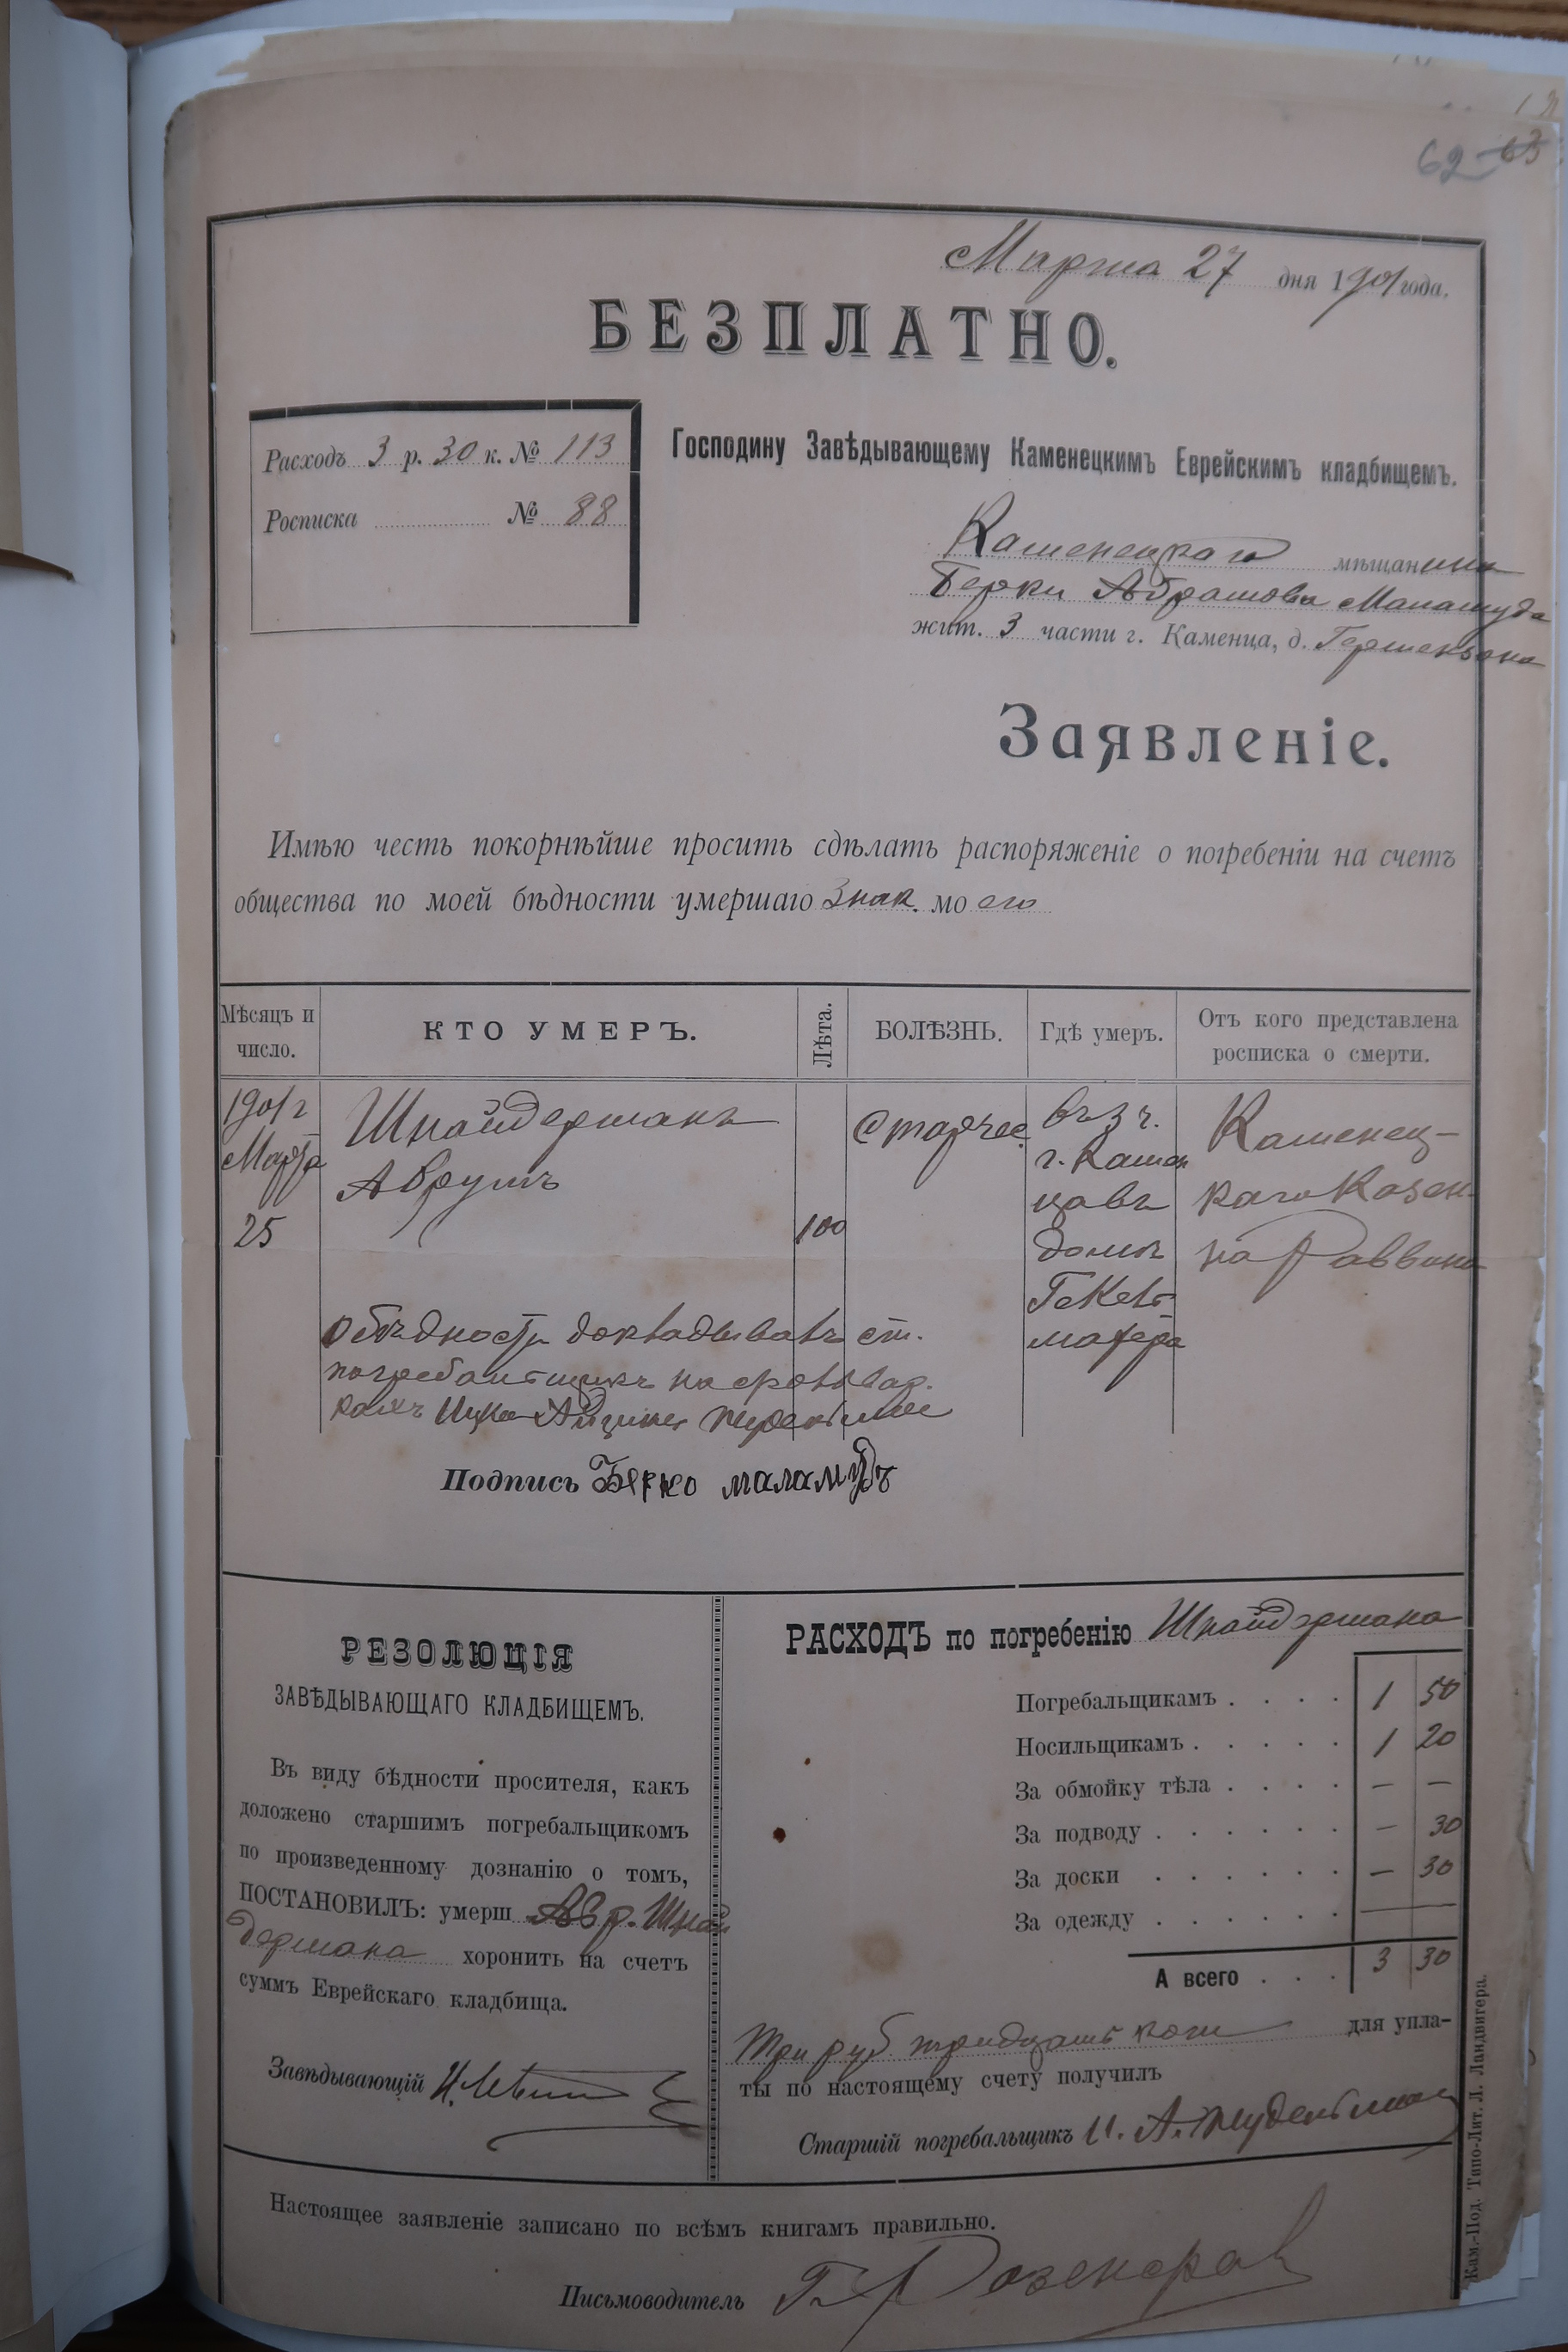 62 63
Марта 27 дня 1901 года.
БЕЗПЛАТНО.
Расходъ 3 р. 30 к. № 113
Росписка № 88
Господину Завѣдывающему Каменецкимъ Еврейскимъ кладбищемъ.
Каменецкаго мѣщанина
Берки Абрамова
жит. 3 части г. Каменца, д. Гершензона
Заявленіе.
Имѣю честь покорнѣйше просить сдѣлать распоряженіе о погребеніи на счетъ
общества по моей бѣдности умершаго Знак. моего
Мѣсяцъ и число.
КТО УМЕРЪ.
Лѣта.
БОЛѢЗНЬ.
Гдѣ умеръ.
Отъ кого представлена росписка о смерти.
1901 г Марта 25
Шнайдерманъ Аврумъ
100
Старчес.
въ 3 ч. г. Камен цавъ домѣ
Каменец- каго Казен- на Раввина
О бѣдности докладывалъ ст.
погребальщикъ
Ицко
Подпись Берко маламудъ
РЕЗОЛЮЦІЯ
ЗАВѢДЫВАЮЩАГО КЛАДБИЩЕМЪ.
Въ виду бѣдности просителя, какъ
доложено старшимъ погребальщикомъ
по произведенному дознанію о томъ,
ПОСТАНОВИЛЪ: умерш Авр. Шнай
дермана хоронить на счетъ
суммъ Еврейскаго кладбища.
Завѣдывающій
РАСХОДЪ по погребенію Шнайдермана
Погребальщикамъ . . . . 1 50
Носильщикамъ . . . . . 1 20
За обмойку тѣла . . . . — —
За подводу . . . . . . — 30
За доски . . . . . . — 30
За одежду . . . . . . —
А всего . . . 3 30
Три руб тридцать коп для упла-
ты по настоящему счету получилъ
Старшій погребальщикъ И. А.
Настоящее заявленіе записано по всѣмъ книгамъ правильно.
Письмоводитель
Кам.-Под. Типо-Лит. Л. Ландвигера.